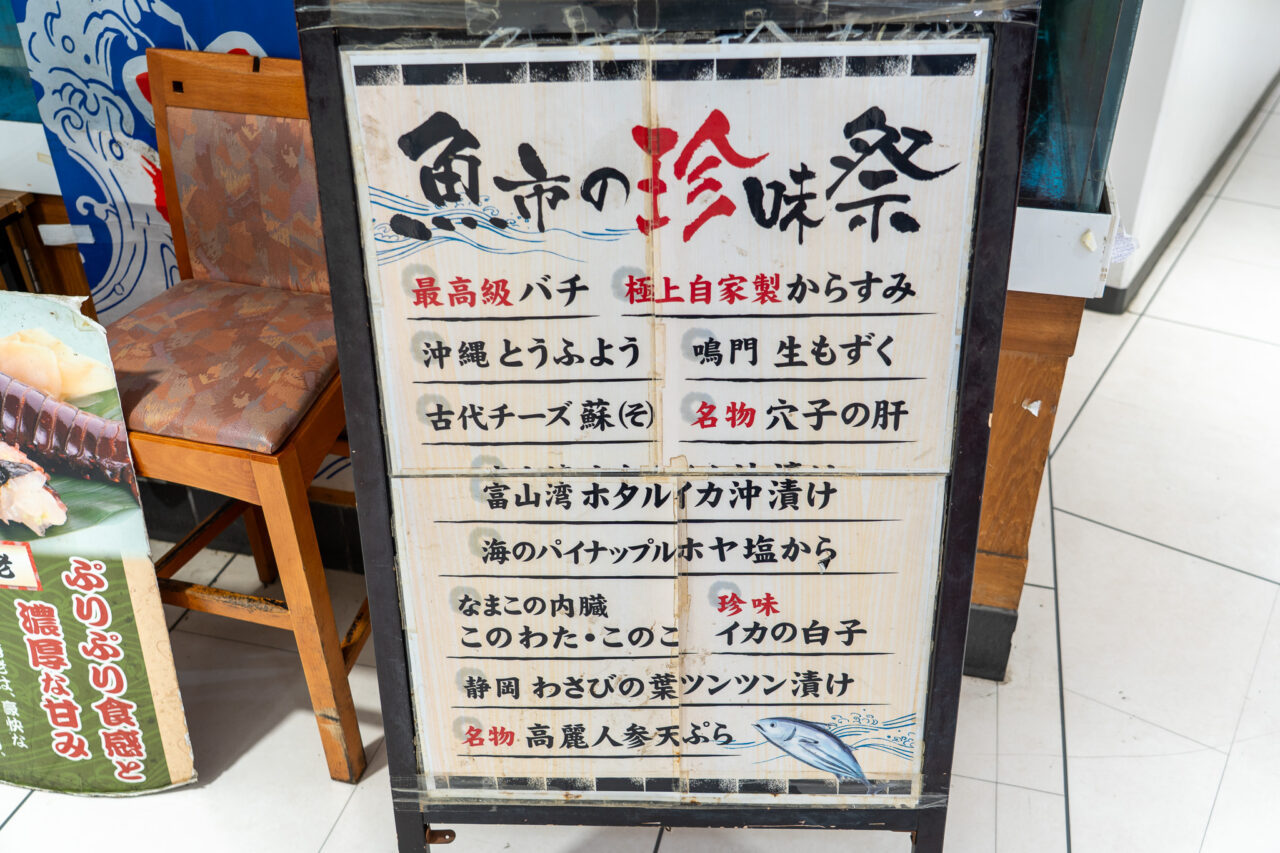 魚市の珍味祭
最高級バチ
極上自家製からすみ
沖縄 とうふよう
鳴門 生もずく
古代チーズ 蘇(そ)
名物 穴子の肝
富山湾 ホタルイカ沖漬け
海のパイナップルホヤ塩から
なまこの内臓
このわた・このこ
珍味
イカの白子
静岡 わさびの葉ツンツン漬け
名物 高麗人参天ぷら
ぷりぷり食感と
濃厚な甘み